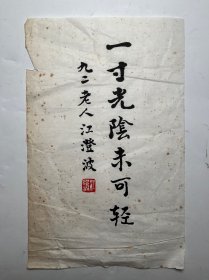 一寸光陰未可轻
九二老人江澄波